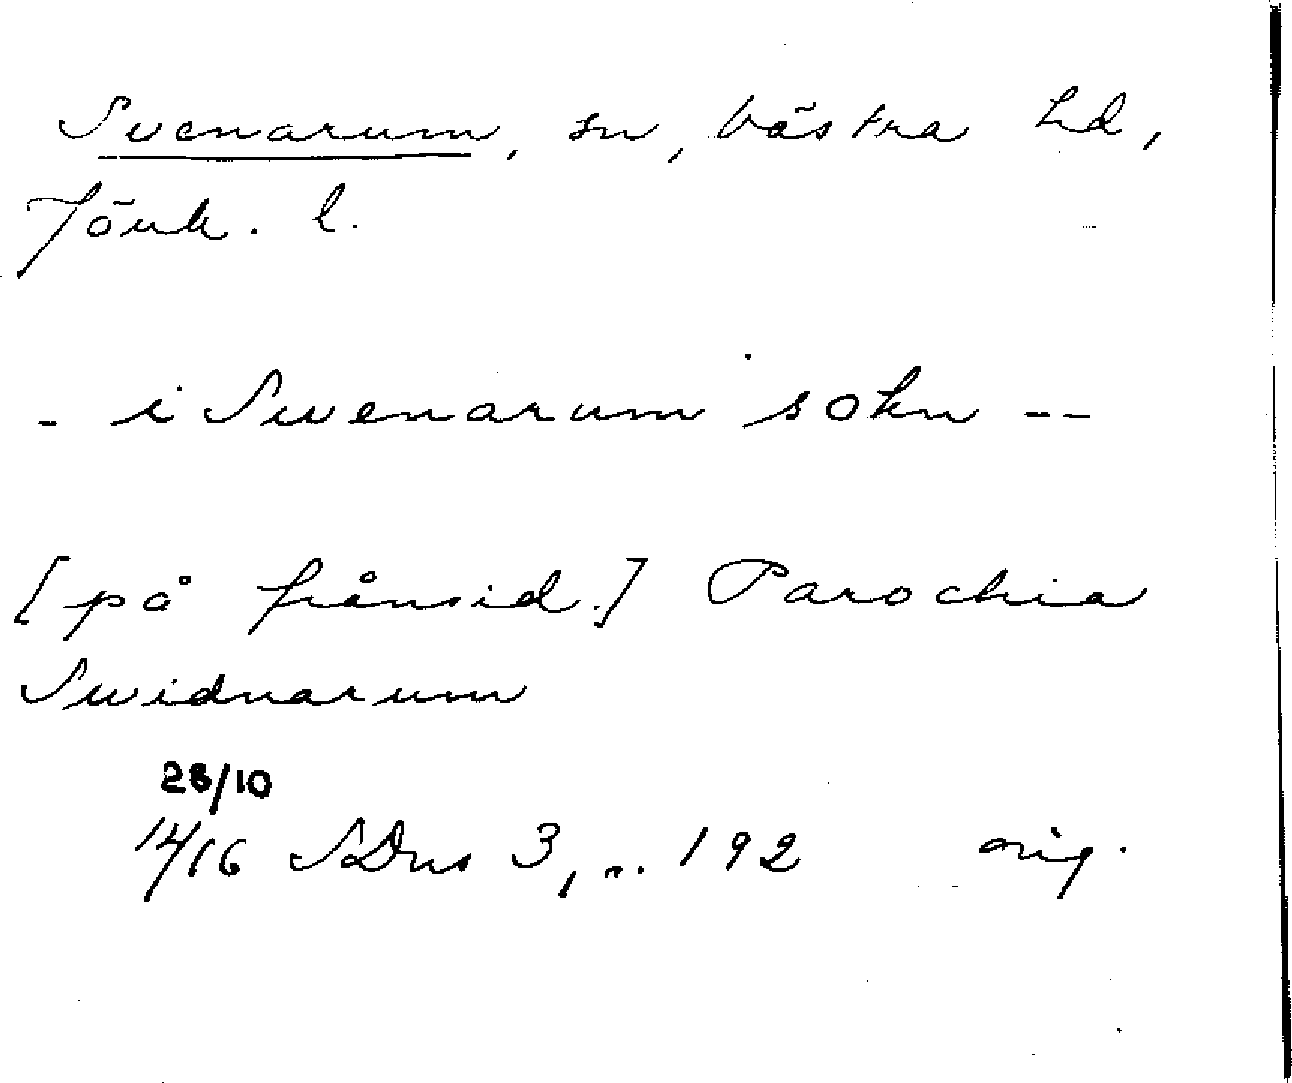 Svenarum, sn, Västra hd,
Jönk. l.
- i Swenarum sokn --
[på frånsid.] Parochia
Swidnarum
28/10
14/16 SDns 3, n. 192 orig.